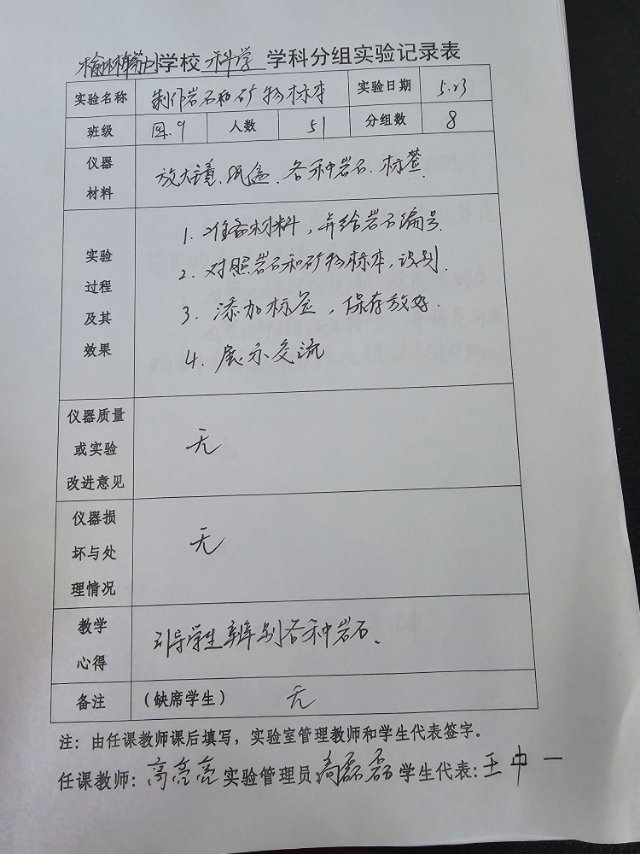 学校 科学 学科分组实验记录表
实验名称 制作岩石和矿物标本 实验日期 5.23
班级 四.9 人数 51 分组数 8
仪器材料 放大镜、纸盒、各种岩石、标签.
实验过程及其效果
1. 准备材料，并给岩石编号.
2. 对照岩石和矿物标本，识别.
3. 添加标签，保存放好.
4. 展示交流
仪器质量或实验改进意见 无
仪器损坏与处理情况 无
教学心得 引导学生辨别各种岩石、
备注 (缺席学生) 无
注：由任课教师课后填写，实验室管理教师和学生代表签字。
任课教师: 高亮亮 实验管理员 磊磊 学生代表: 王中一